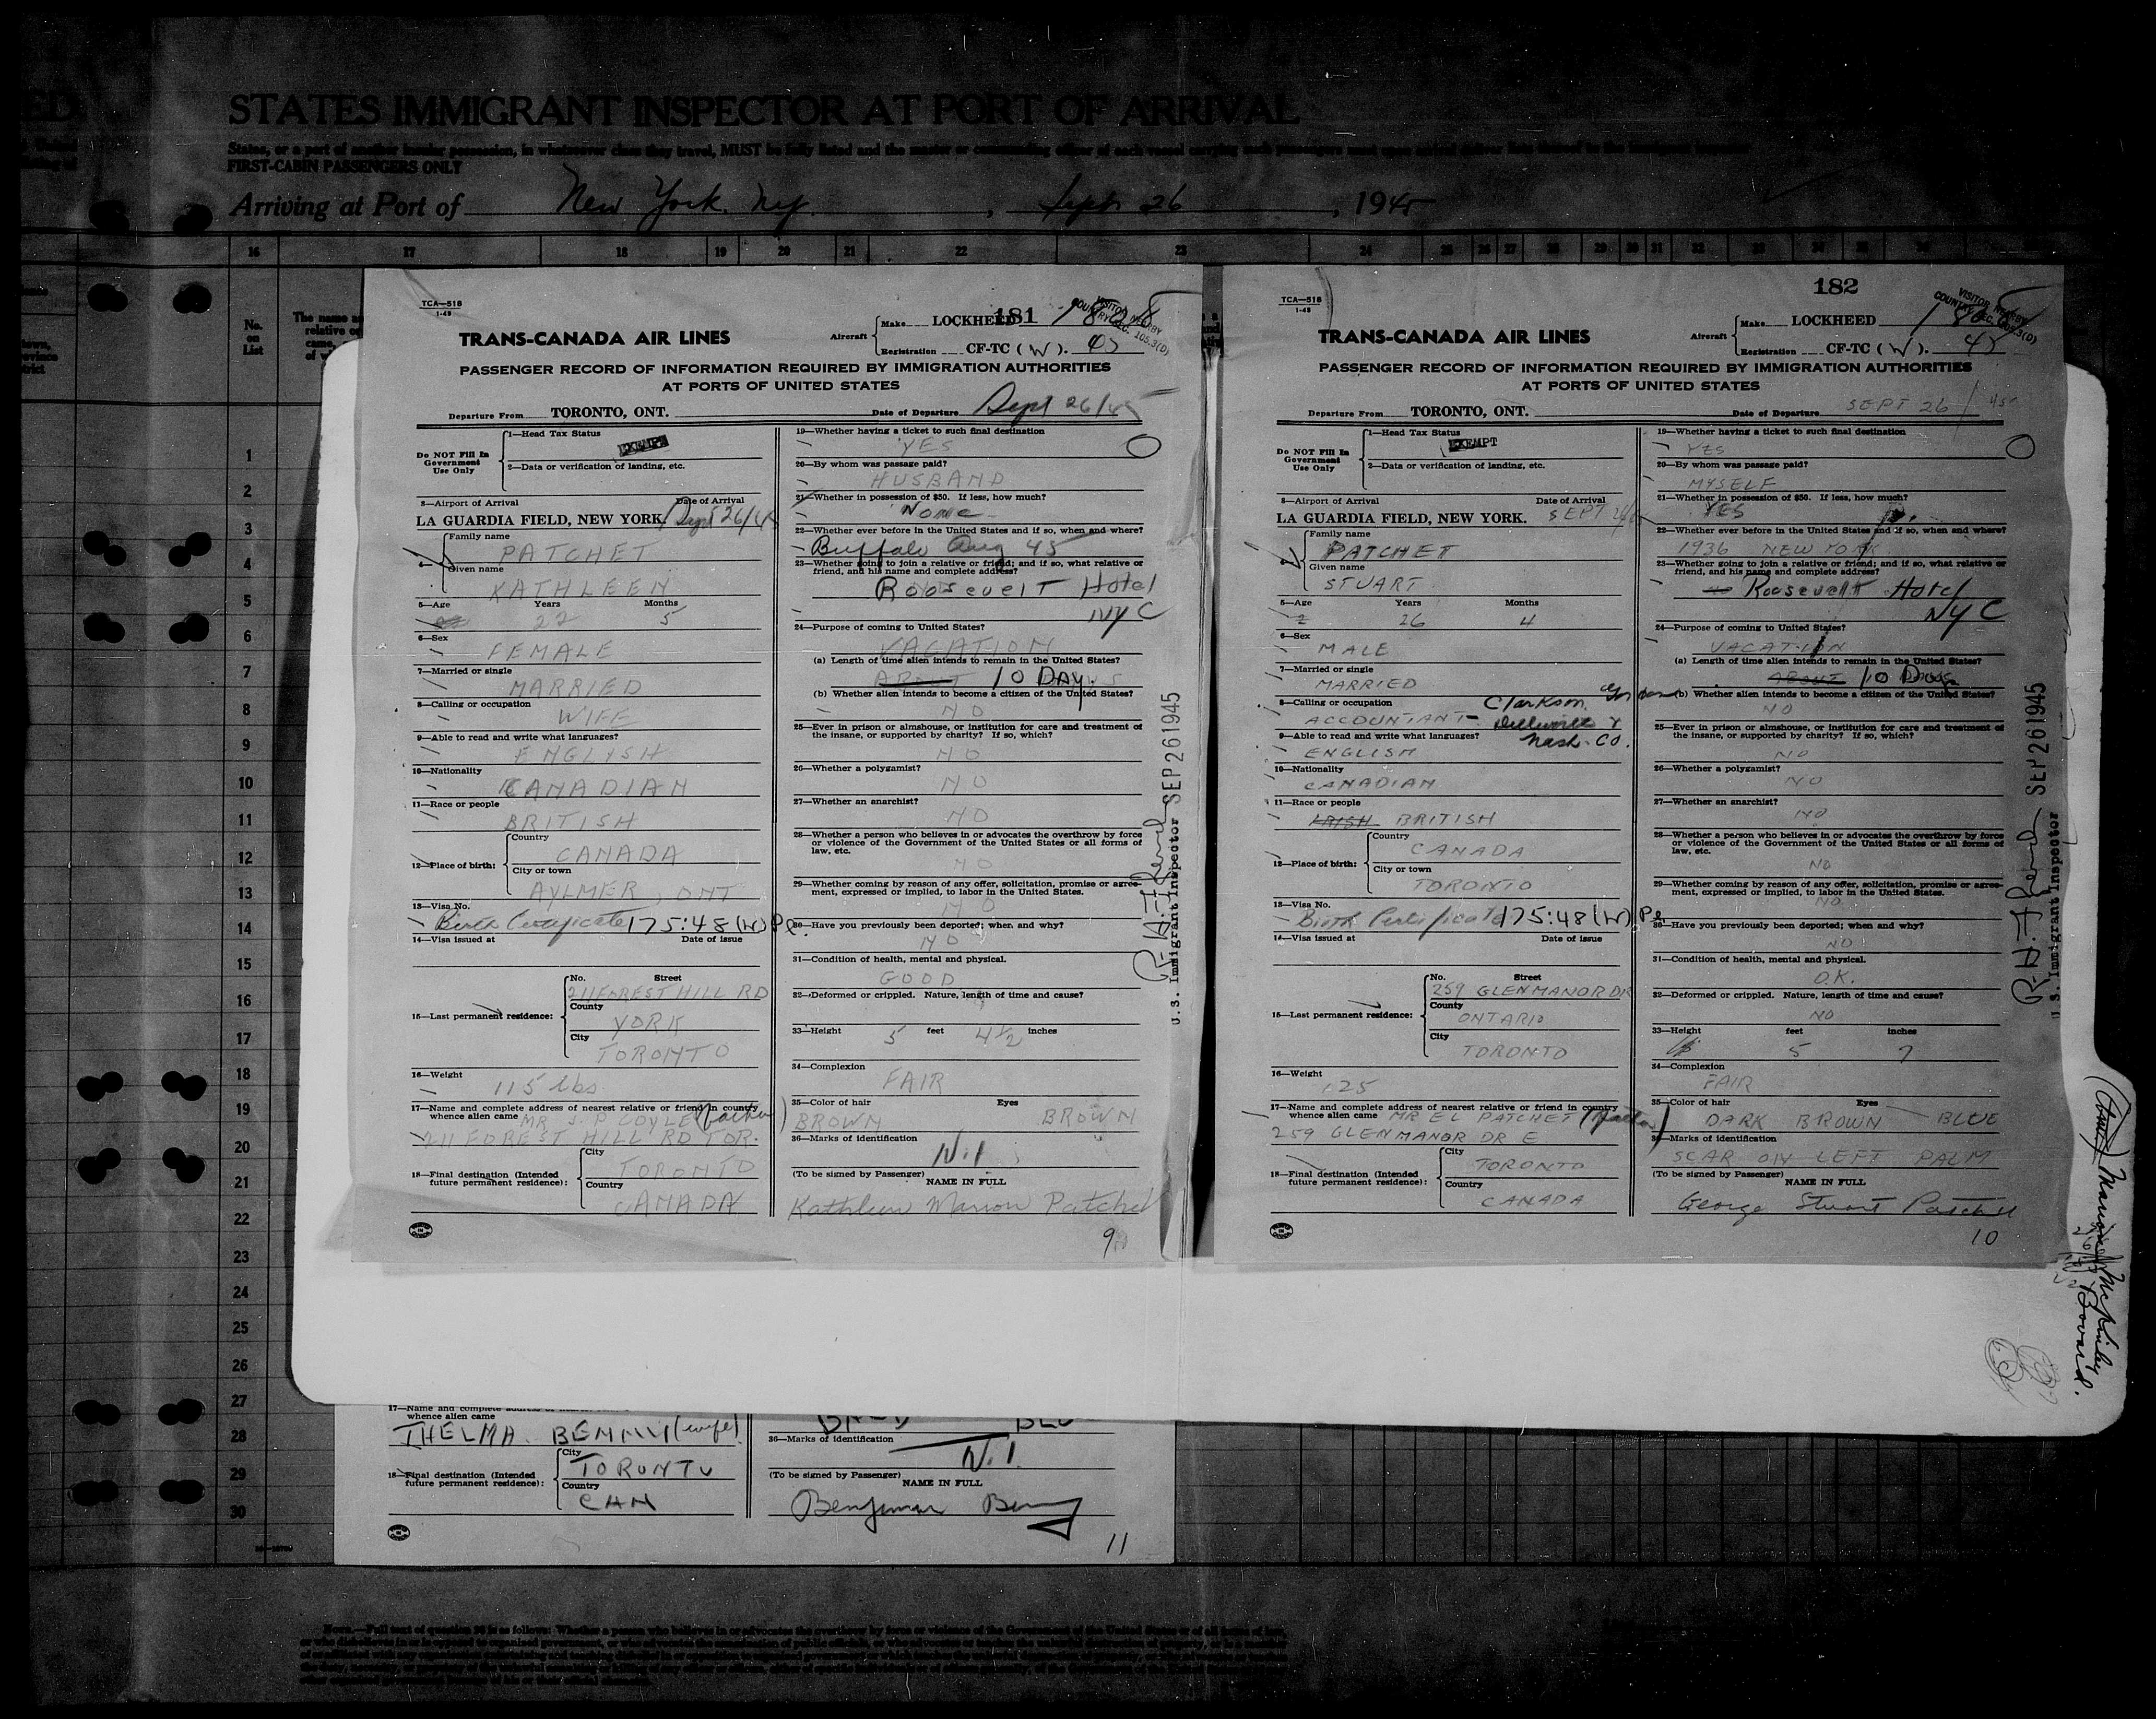 STATES IMMIGRANT INSPECTOR AT PORT OF ARRIVAL
States, or a part of another insular possession, in whatsoever class they travel, MUST be fully listed and the master or commanding officer of each vessel carrying such passengers must upon arrival deliver lists thereof to the immigrant inspector
FIRST-CABIN PASSENGERS ONLY
Arriving at Port of New York, Ny, Sept 26, 1945
16 17 18 19 20 21 22 23 24 25 26 27 28 29 30 31 32 33 34 35 36
No. on List
1
2
3
4
5
6
7
8
9
10
11
12
13
14
15
16
17
18
19
20
21
22
23
24
25
26
27
28
29
30
TCA—518
1-45
181
TRANS-CANADA AIR LINES
Aircraft Make LOCKHEED
Registration CF-TC (W).
VISITOR NEARBY
COUNTRY SEC. 105.3(D)
PASSENGER RECORD OF INFORMATION REQUIRED BY IMMIGRATION AUTHORITIES
AT PORTS OF UNITED STATES
Departure From TORONTO, ONT. Date of Departure Sept 26/45
Do NOT Fill In Government Use Only
1—Head Tax Status EXEMPT
2—Data or verification of landing, etc.
3—Airport of Arrival Date of Arrival
LA GUARDIA FIELD, NEW YORK. Sept 26/45
Family name
PATCHET
Given name
KATHLEEN
5—Age Years Months
22 5
6—Sex
FEMALE
7—Married or single
MARRIED
8—Calling or occupation
WIFE
9—Able to read and write what languages?
ENGLYSH
10—Nationality
CANADIAN
11—Race or people
BRITISH
12—Place of birth: Country
CANADA
City or town
AYLMER, ONT
13—Visa No.
Birth Certificate 175:48 (W) Pe.
14—Visa issued at Date of issue
15—Last permanent residence: No. Street
211 FOREST HILL RD
County
YORK
City
TORONTO
16—Weight
115 lbs
17—Name and complete address of nearest relative or friend in country
whence alien came MR J. P COYLE (Father)
211 FOREST HILL RD TOR.
18—Final destination (Intended future permanent residence): City
TORONTO
Country
CANADA
19—Whether having a ticket to such final destination
YES
20—By whom was passage paid?
HUSBAND
21—Whether in possession of $50. If less, how much?
None
22—Whether ever before in the United States and if so, when and where?
Buffalo Aug 45
23—Whether going to join a relative or friend; and if so, what relative or
friend, and his name and complete address?
Roosevelt Hotel
NYC
24—Purpose of coming to United States?
VACATION
(a) Length of time alien intends to remain in the United States?
ABOUT 10 DAYS
(b) Whether alien intends to become a citizen of the United States?
NO
25—Ever in prison or almshouse, or institution for care and treatment of
the insane, or supported by charity? If so, which?
NO
26—Whether a polygamist?
NO
27—Whether an anarchist?
NO
28—Whether a person who believes in or advocates the overthrow by force
or violence of the Government of the United States or all forms of
law, etc.
NO
29—Whether coming by reason of any offer, solicitation, promise or agree-
ment, expressed or implied, to labor in the United States.
NO
30—Have you previously been deported; when and why?
NO
31—Condition of health, mental and physical.
GOOD
32—Deformed or crippled. Nature, length of time and cause?
33—Height 5 feet 4½ inches
34—Complexion
FAIR
35—Color of hair Eyes
BROWN BROWN
36—Marks of identification
Nil
(To be signed by Passenger)
NAME IN FULL
Kathleen Marion Patchet
9
U.S. Immigrant Inspector SEP 26 1945
TCA—518
1-45
182
TRANS-CANADA AIR LINES
Aircraft Make LOCKHEED
Registration CF-TC (W).
VISITOR NEARBY
COUNTRY SEC. 105.3(D)
PASSENGER RECORD OF INFORMATION REQUIRED BY IMMIGRATION AUTHORITIES
AT PORTS OF UNITED STATES
Departure From TORONTO, ONT. Date of Departure SEPT 26/45
Do NOT Fill In Government Use Only
1—Head Tax Status EXEMPT
2—Data or verification of landing, etc.
3—Airport of Arrival Date of Arrival
LA GUARDIA FIELD, NEW YORK. SEPT 26
Family name
PATCHET
Given name
STUART
5—Age Years Months
26 4
6—Sex
MALE
7—Married or single
MARRIED
8—Calling or occupation
ACCOUNTANT- Clarkson, Gordon Dilworth & Nash Co.
9—Able to read and write what languages?
ENGLISH
10—Nationality
CANADIAN
11—Race or people
IRISH BRITISH
12—Place of birth: Country
CANADA
City or town
TORONTO
13—Visa No.
Birth Certificate 175:48 (W) Pe
14—Visa issued at Date of issue
15—Last permanent residence: No. Street
259 GLENMANOR DR
County
ONTARIO
City
TORONTO
16—Weight
125
17—Name and complete address of nearest relative or friend in country
whence alien came MR EL PATCHET (Father)
259 GLENMANOR DR E
18—Final destination (Intended future permanent residence): City
TORONTO
Country
CANADA
19—Whether having a ticket to such final destination
YES
20—By whom was passage paid?
MYSELF
21—Whether in possession of $50. If less, how much?
YES
22—Whether ever before in the United States and if so, when and where?
1936 NEW YORK
23—Whether going to join a relative or friend; and if so, what relative or
friend, and his name and complete address?
Roosevelt Hotel
NYC
24—Purpose of coming to United States?
VACATION
(a) Length of time alien intends to remain in the United States?
ABOUT 10 Days
(b) Whether alien intends to become a citizen of the United States?
NO
25—Ever in prison or almshouse, or institution for care and treatment of
the insane, or supported by charity? If so, which?
NO
26—Whether a polygamist?
NO
27—Whether an anarchist?
NO
28—Whether a person who believes in or advocates the overthrow by force
or violence of the Government of the United States or all forms of
law, etc.
NO
29—Whether coming by reason of any offer, solicitation, promise or agree-
ment, expressed or implied, to labor in the United States.
NO
30—Have you previously been deported; when and why?
NO
31—Condition of health, mental and physical.
O.K.
32—Deformed or crippled. Nature, length of time and cause?
NO
33—Height feet inches
5 7
34—Complexion
FAIR
35—Color of hair Eyes
DARK BROWN BLUE
36—Marks of identification
SCAR ON LEFT PALM
(To be signed by Passenger)
NAME IN FULL
George Stuart Patchet
10
U.S. Immigrant Inspector SEP 26 1945
17—Name and complete address
whence alien came
THELMA (wife)
18—Final destination (Intended future permanent residence): City
TORONTO
Country
CAN
36—Marks of identification
Nil
(To be signed by Passenger)
NAME IN FULL
11